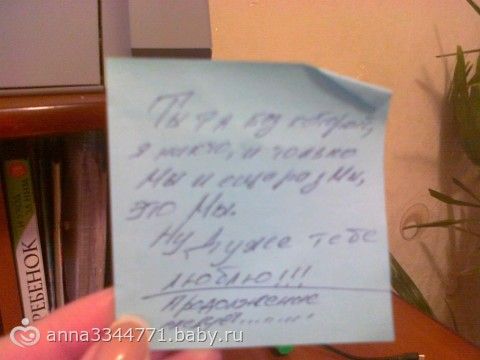 Ты та без которой,
я никто, и только
Мы и еще раз Мы,
это Мы.
Ну уже тебе
люблю!!!
Продолжение
РЕБЕНОК
anna3344771.baby.ru